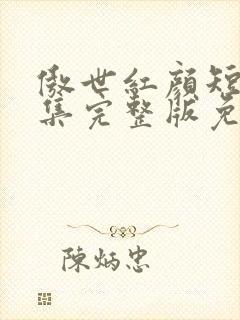 傲世紅顏短
集完整版免
陳炳忠